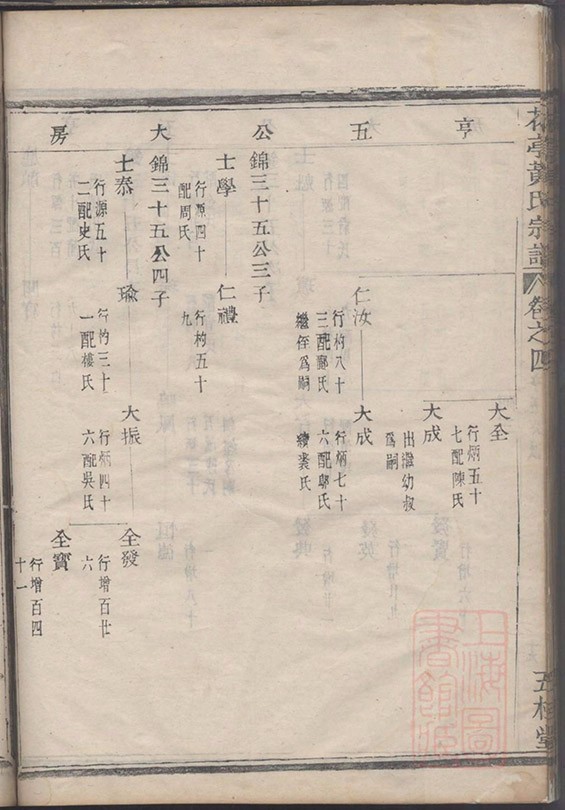 花亭黃氏宗譜 卷之四
五桂堂
亨
五
公
大
房
大全
行炳五十
七配陳氏
大成
出繼幼叔
爲嗣
仁汝
行杓八十
三配鄭氏
繼侄爲嗣
大成
行炳七十
六配鄔氏
續裘氏
錦三十五公三子
士學
行源四十
配周氏
仁禮
行杓五十
九
錦三十五公四子
士泰
行源五十
二配史氏
瑜
行杓三十
一配樓氏
大振
行炳四十
六配吳氏
全發
行增百廿
六
全寶
行增百四
十一
上海圖書館藏